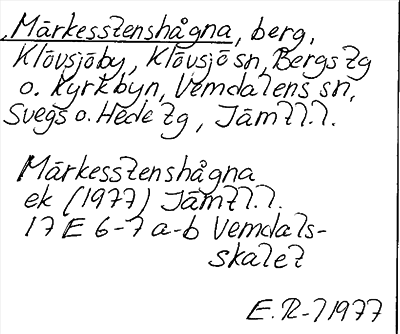 Märkesstenshågna, berg,
Klövsjöby, Klövsjö sn, Bergs tg
o. Kyrkbyn, Vemdalens sn,
Svegs o. Hede tg, Jämtl.l.
Märkesstenshågna
ek (1977) Jämtl.l.
17 E 6-7 a-b Vemdals-
skalet
E.R-l 1977